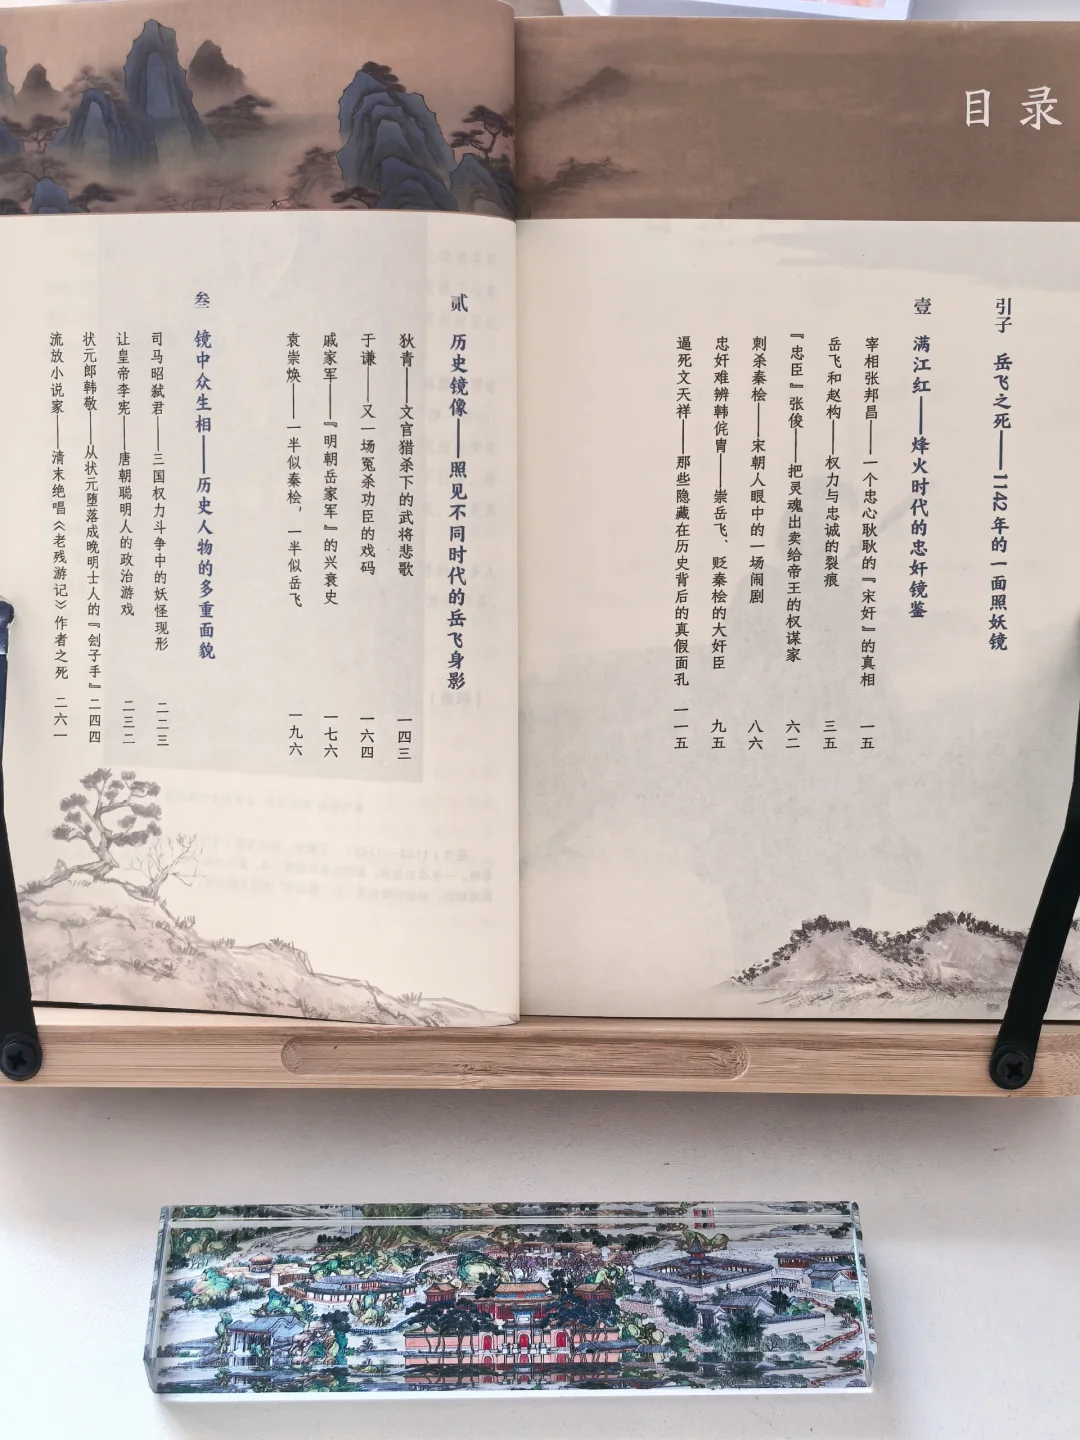 目录
引子 岳飞之死——1142年的一面照妖镜
壹 满江红——烽火时代的忠奸镜鉴
宰相张邦昌——一个忠心耿耿的『宋奸』的真相 一五
岳飞和赵构——权力与忠诚的裂痕 三五
『忠臣』张俊——把灵魂出卖给帝王的权谋家 六二
刺杀秦桧——宋朝人眼中的一场闹剧 八六
忠奸难辨韩侂胄——崇岳飞、贬秦桧的大奸臣 九五
逼死文天祥——那些隐藏在历史背后的真假面孔 一一五
贰 历史镜像——照见不同时代的岳飞身影
狄青——文官猎杀下的武将悲歌 一四三
于谦——又一场冤杀功臣的戏码 一六四
戚家军——『明朝岳家军』的兴衰史 一七六
袁崇焕——一半似秦桧，一半似岳飞 一九六
叁 镜中众生相——历史人物的多重面貌
司马昭弑君——三国权力斗争中的妖怪现形 二二三
让皇帝李宪——唐朝聪明人的政治游戏 二三二
状元郎韩敬——从状元堕落成晚明士人的『刽子手』 二四四
流放小说家——清末绝唱《老残游记》作者之死 二六一